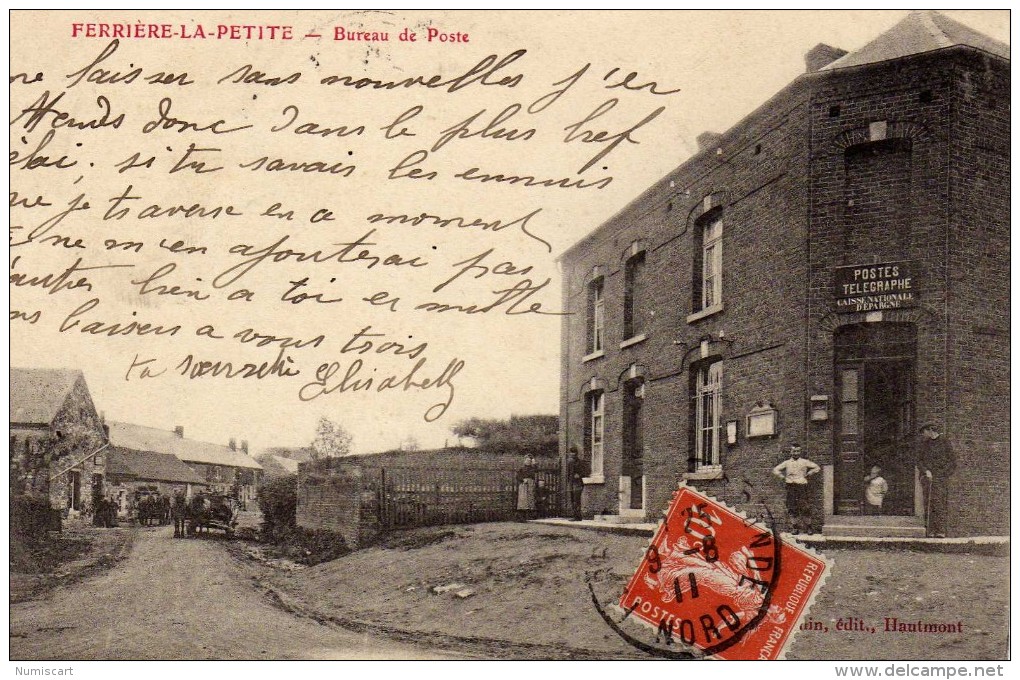 FERRIÈRE-LA-PETITE — Bureau de Poste
me laisser sans nouvelles j'en
Attends donc dans le plus bref
délai. si tu savais les ennuis
que je traverse en ce moment
tu ne m'en ajouterai pas
d'autre bien a toi et mille
bons baisers a vous trois
ta soeurette Elisabeth
POSTES
TELEGRAPHE
CAISSE NATIONALE
D'EPARGNE
9 - 8
11
NORD
10
POSTES
RÉPUBLIQUE FRANÇ
ain, édit., Hautmont
Numiscart
www.delcampe.net